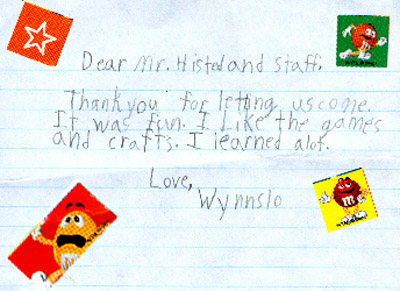 Dear Mr. Histed and staff,
Thank you for letting us come.
It was fun. I Like the games
and crafts. I learned alot.
Love,
Wynnslo